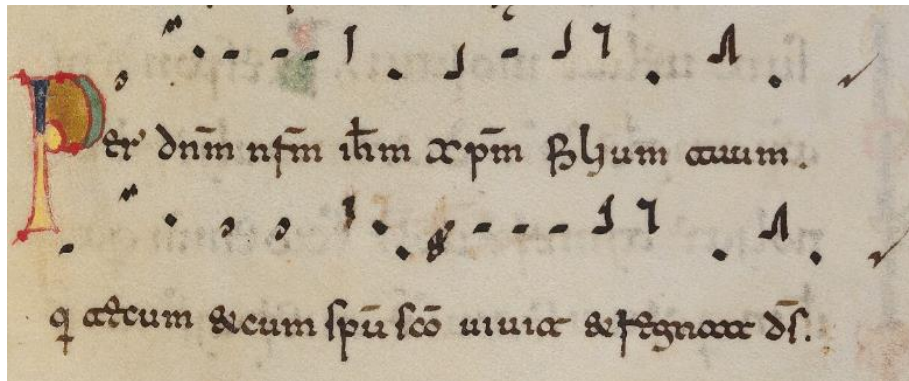 Per dn̄m nr̄m ih̄m xp̄m filium tuum.
q tecum et cum sp̄u scō uiuit et regnat ds̄.